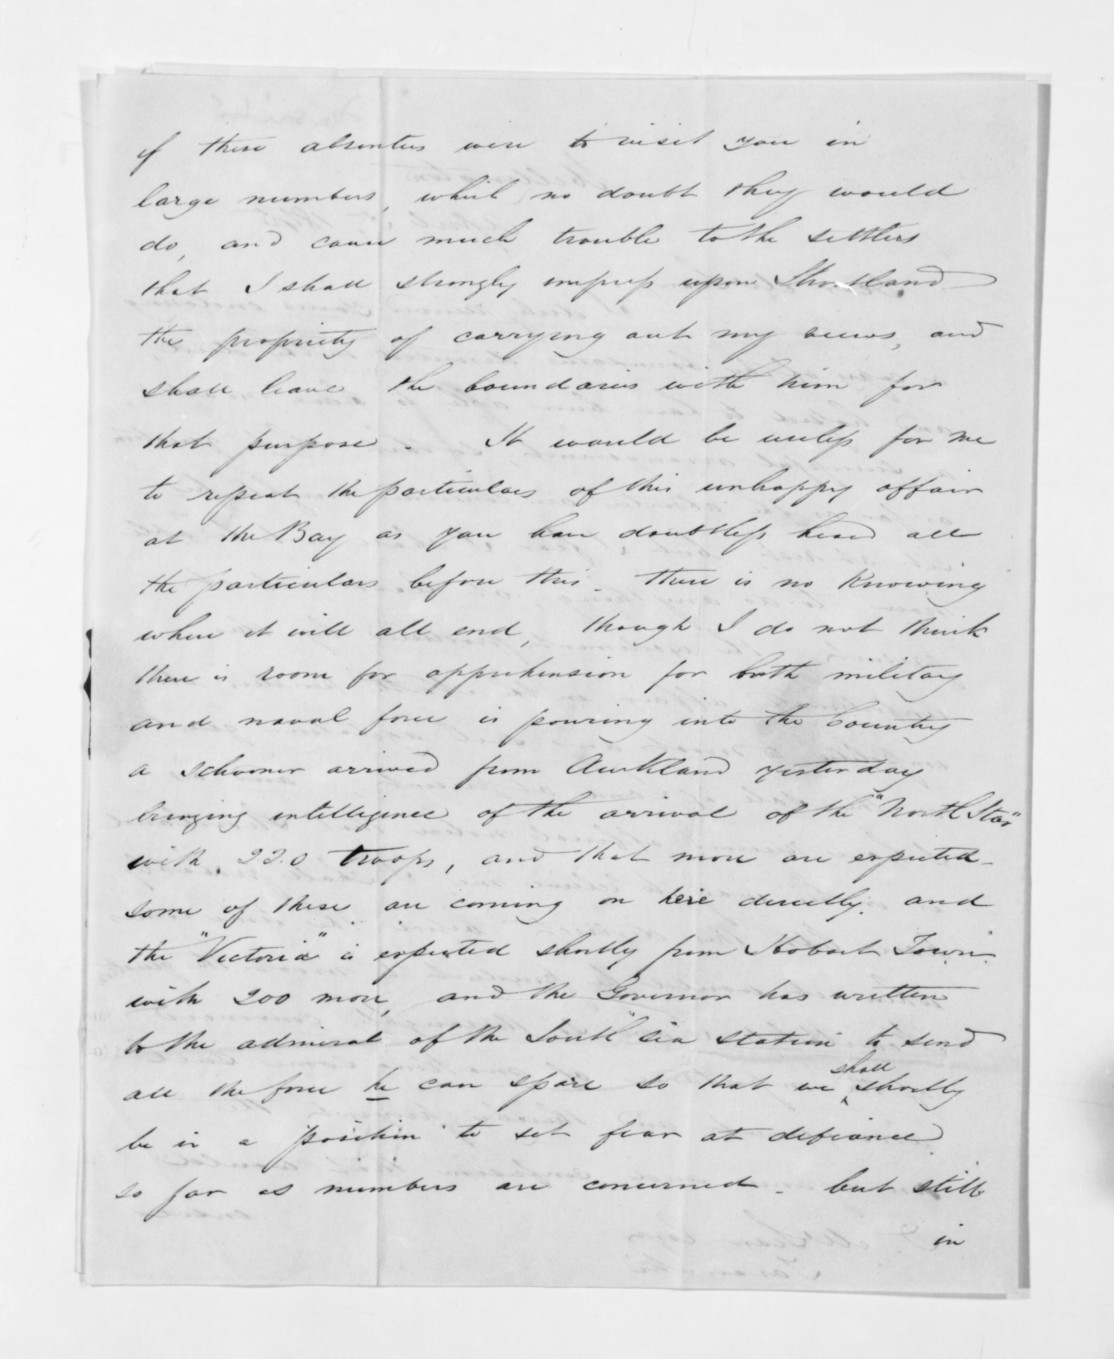 if these absentees were to visit you in
large numbers, which no doubt they would
do, and cause much trouble to the settlers
that I shall strongly impress upon Shortland
the propriety of carrying out my views, and
shall leave the boundaries with him for
that purpose. It would be useless for me
to repeat the particulars of this unhappy affair
at the Bay as you have doubtless heard all
the particulars before this. There is no knowing
where it will all end, though I do not think
there is room for apprehension for both military
and naval force is pouring into the Country
a schooner arrived from Auckland yesterday
bringing intelligence of the arrival of the "North Star"
with 220 troops, and that more are expected -
some of these are coming on here directly. and
the "Victoria" is expected shortly from Hobart Town
with 200 more, and the Governor has written
to the admiral of the South sea station to send
all the force he can spare so that we shall shortly
be in a position to set fear at defiance
so far as numbers are concerned - but still
in